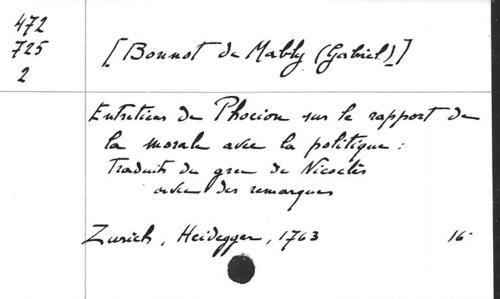 472
725
2
[Bonnot de Mably (Gabriel)]
Entretiens de Phocion sur le rapport de
la morale avec la politique :
Traduits du grec de Nicoclès
avec des remarques
Zurich, Heidegger, 1763 16°